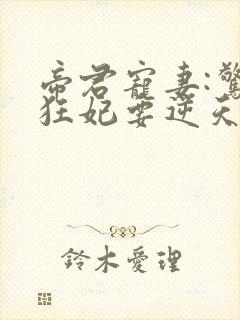 帝君寵妻:驚
狂妃要逆天
鈴木愛理